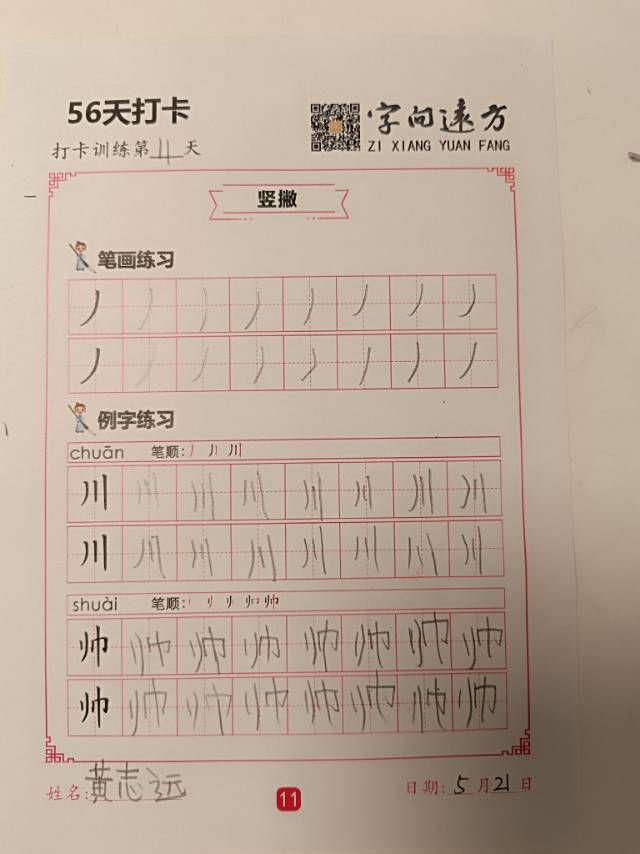 56天打卡
字向远方
ZI XIANG YUAN FANG
打卡训练第11天
竖撇
笔画练习
丿丿丿丿丿丿丿丿
丿丿丿丿丿丿丿丿
例字练习
chuān 笔顺: 丿 丿丨 川
川川川川川川川川
川川川川川川川川
shuài 笔顺:
帅帅帅帅帅帅帅帅
帅帅帅帅帅帅帅帅
姓名:黄志远
11
日期:5月21日